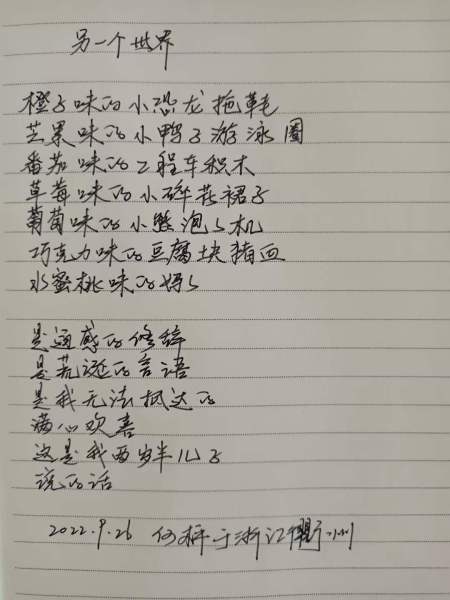 另一个世界
橙子味的小恐龙拖鞋
芒果味的小鸭子游泳圈
番茄味的工程车积木
草莓味的小碎花裙子
葡萄味的小熊泡泡机
巧克力味的豆腐块猪血
水蜜桃味的妈妈
是通感的修辞
是荒诞的言语
是我无法抵达的
满心欢喜
这是我两岁半儿子
说的话
2022.9.26 何 于浙江衢州